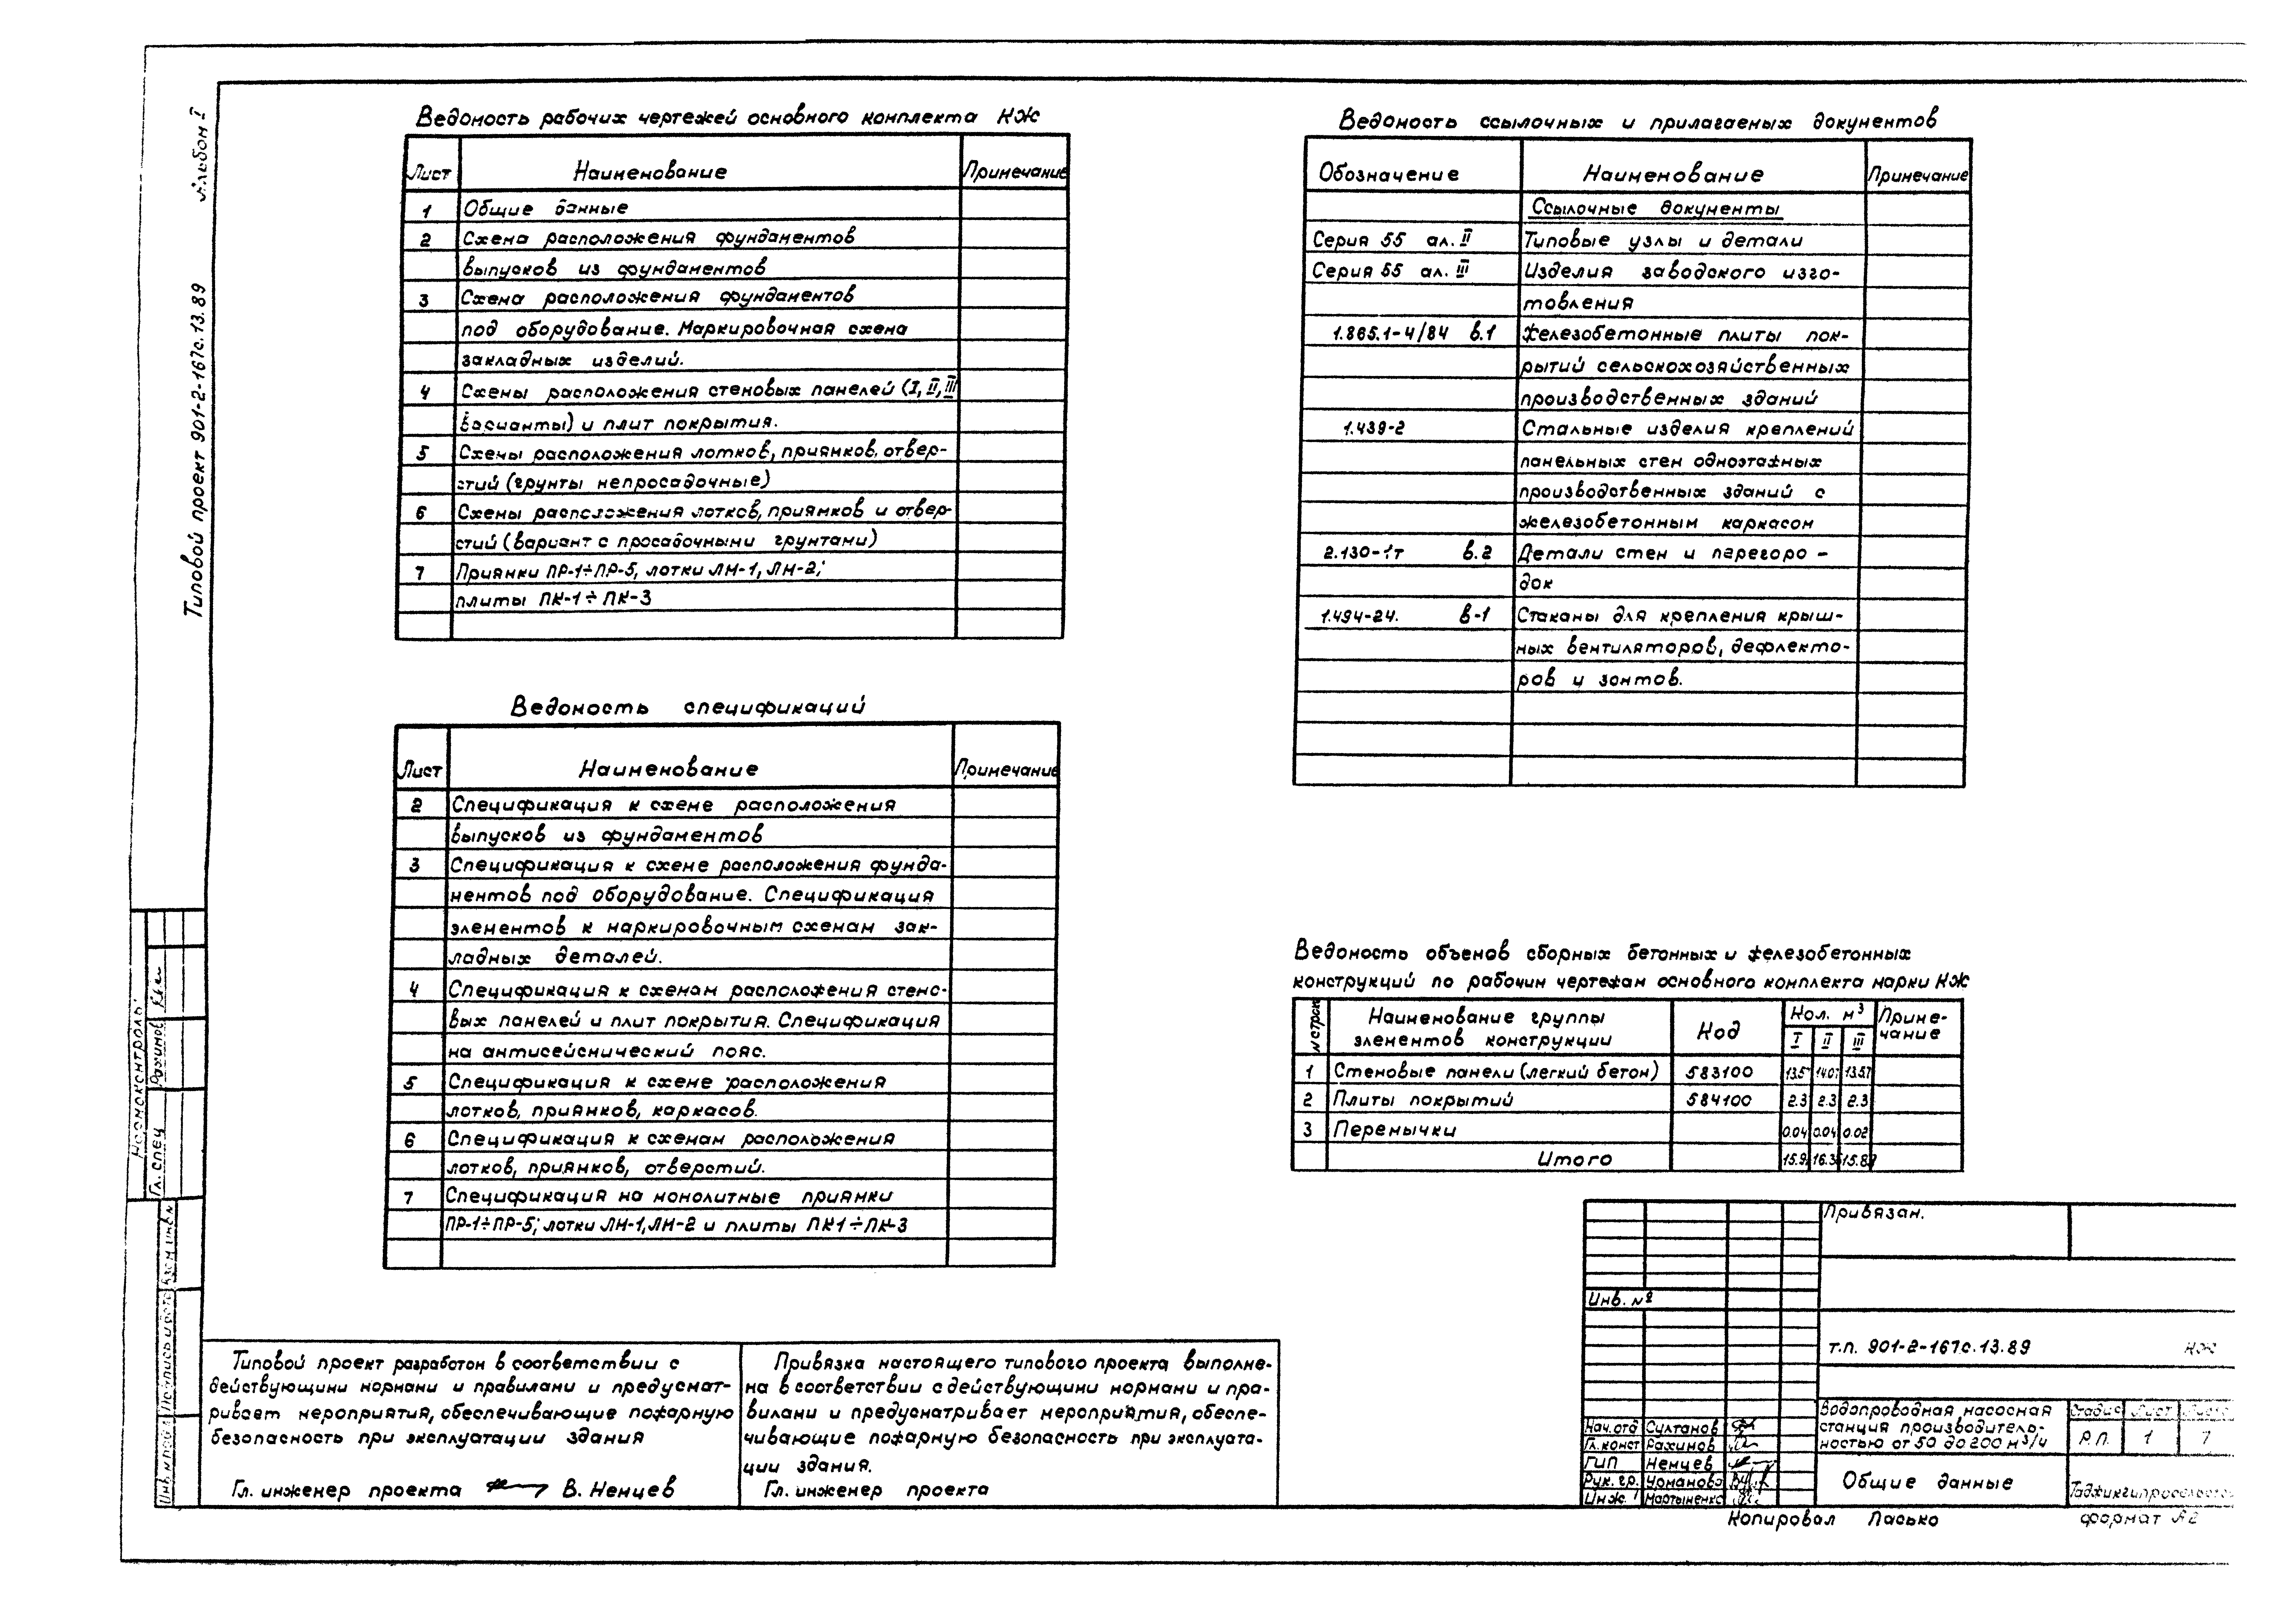 Альбом I
Типовой проект 901-2-167с.13.89
Ведомость рабочих чертежей основного комплекта КЖ
Лист Наименование Примечание
1 Общие данные
2 Схема расположения фундаментов
выпусков из фундаментов
3 Схема расположения фундаментов
под оборудование. Маркировочная схема
закладных изделий.
4 Схемы расположения стеновых панелей (I, II, III
варианты) и плит покрытия.
5 Схемы расположения лотков, приямков, отвер-
стий (грунты непросадочные)
6 Схемы расположения лотков, приямков и отвер-
стий (вариант с просадочными грунтами)
7 Приямки ПР-1÷ПР-5, лотки ЛМ-1, ЛМ-2;
плиты ПК-1÷ПК-3
Ведомость спецификаций
Лист Наименование Примечание
2 Спецификация к схеме расположения
выпусков из фундаментов
3 Спецификация к схеме расположения фунда-
ментов под оборудование. Спецификация
элементов к маркировочным схемам зак-
ладных деталей.
4 Спецификация к схемам расположения стено-
вых панелей и плит покрытия. Спецификация
на антисейсмический пояс.
5 Спецификация к схеме расположения
лотков, приямков, каркасов.
6 Спецификация к схемам расположения
лотков, приямков, отверстий.
7 Спецификация на монолитные приямки
ПР-1÷ПР-5; лотки ЛМ-1, ЛМ-2 и плиты ПК1÷ПК-3
Ведомость ссылочных и прилагаемых документов
Обозначение Наименование Примечание
Ссылочные документы
Серия 55 ал. II Типовые узлы и детали
Серия 55 ал. III Изделия заводского изго-
товления
1.865.1-4/84 в.1 Железобетонные плиты пок-
рытий сельскохозяйственных
производственных зданий
1.439-2 Стальные изделия креплений
панельных стен одноэтажных
производственных зданий с
железобетонным каркасом
2.130-1т в.2 Детали стен и перегоро-
док
1.494-24. в-1 Стаканы для крепления крыш-
ных вентиляторов, дефлекто-
ров и зонтов.
Ведомость объемов сборных бетонных и железобетонных
конструкций по рабочим чертежам основного комплекта марки КЖ
№ строк Наименование группы элементов конструкции Код Кол. м³ Приме-
чание
I II III
1 Стеновые панели (легкий бетон) 583100 13.57 14.07 13.57
2 Плиты покрытий 584100 2.3 2.3 2.3
3 Перемычки 0.04 0.04 0.02
Итого 15.9 16.3 15.89
Типовой проект разработан в соответствии с
действующими нормами и правилами и предусмат-
ривает мероприятия, обеспечивающие пожарную
безопасность при эксплуатации здания
Гл. инженер проекта В. Немцев
Привязка настоящего типового проекта выполне-
на в соответствии с действующими нормами и пра-
вилами и предусматривает мероприятия, обеспе-
чивающие пожарную безопасность при эксплуата-
ции здания.
Гл. инженер проекта
Привязан.
Инв. №
т.п. 901-2-167с.13.89 КЖ
Нач. отд Султанов
Гл. конст Рахимов
ГИП Немцев
Рук. гр. Урманова
Инж. Мартыненко
Водопроводная насосная
станция производитель-
ностью от 50 до 200 м³/ч
Стадия Лист Листов
Р.П. 1 7
Общие данные
Таджикгипросельстрой
Копировал Пасько
формат А2
Нормоконтроль:
Гл. спец Рахимов
Инв. № подл. Подпись и дата Взам. инв. №